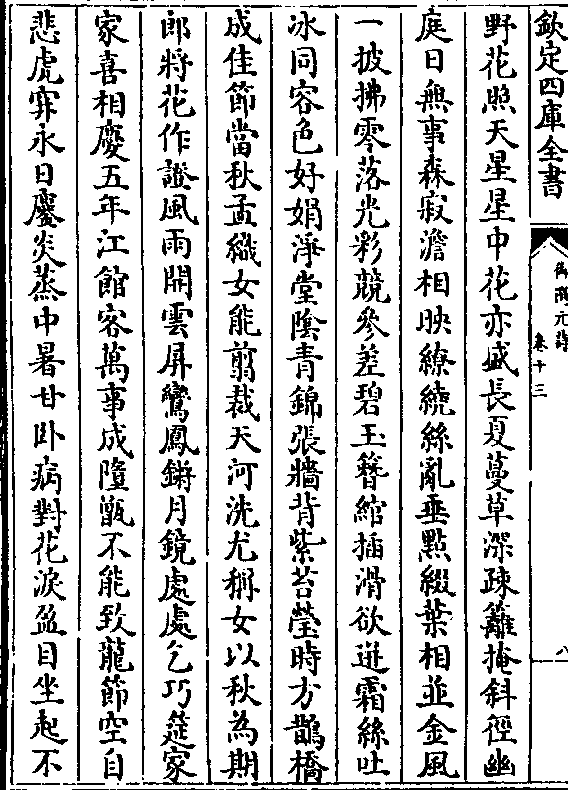 欽定四庫全書
御選元詩
卷十三
八
野花照天星星中花亦盛長夏蔓草深疎籬掩斜徑幽
庭日無事森寂澹相映繚繞絲亂垂點綴葉相並金風
一披拂零落光彩競參差碧玉簪綰插滑欲迸霜絲吐
冰同容色好娟淨堂陰青錦張牆背紫苔瑩時方鵲橋
成佳節當秋孟織女能剪裁天河洗尤稱女以秋為期
郎將花作證風雨開雲屏鸞鳳鏘月鏡處處乞巧筵家
家喜相慶五年江館客萬事成墮甑不能致龍節空自
悲虎穽永日處炎蒸中暑甘卧病對花淚盈目坐起不